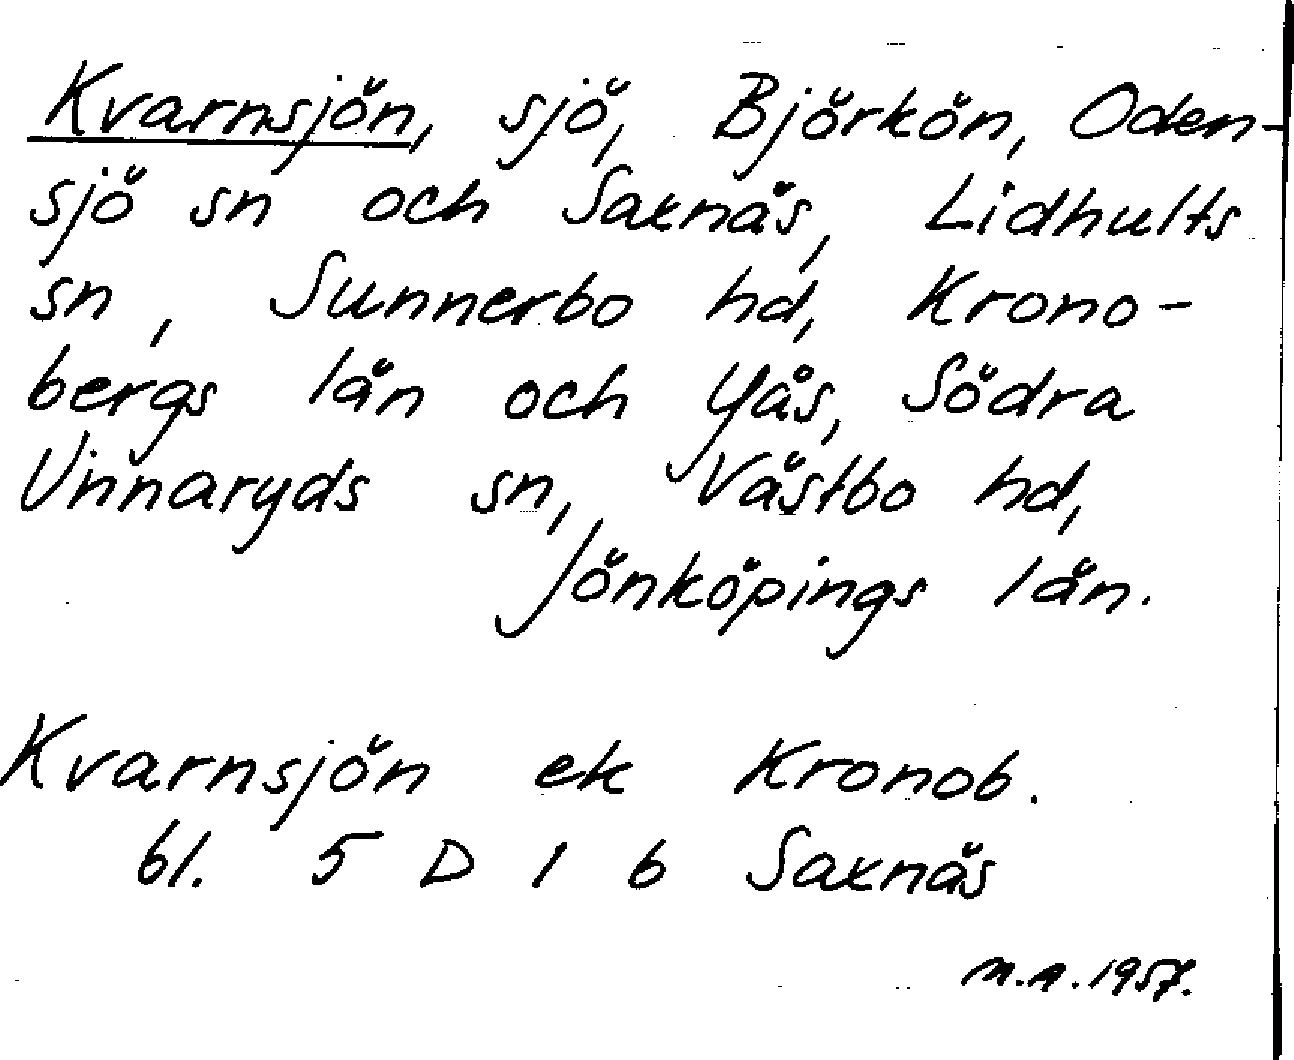 Kvarnsjön, sjö, Björkön, Oden-
sjö sn och Saxnäs, Lidhults
sn, Sunnerbo hd, Krono-
bergs län och Yås, Södra
Unnaryds sn, Västbo hd,
Jönköpings län.
Kvarnsjön ek Kronob.
bl. 5 D 1 b Saxnäs
M.A. 1957.